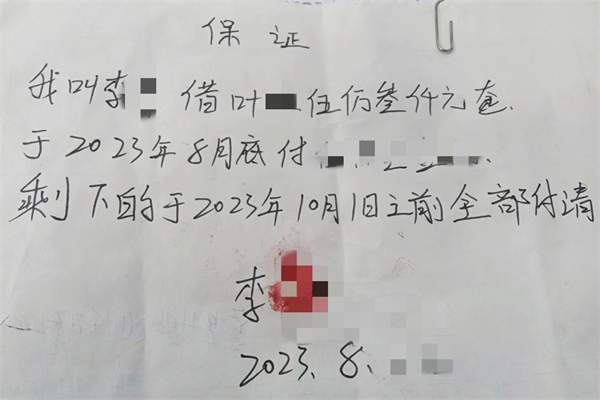 保 证
我叫李 借叶 伍仂叁仟元
于2023年8月底付
剩下的于2023年10月1日之前全部付请
李
2023、8、